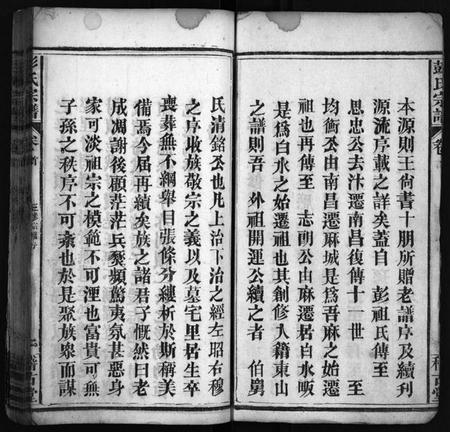 彭氏宗譜
本源則王尚書十朋所贈老譜序及續刋
源流序載之詳矣蓋自　彭祖氏傳至
思忠公去汴遷南昌復傳十一世　至
均衡公由南昌遷麻城是爲吾麻之始遷
祖也再傳至　志朗公由麻遷居白水畈
是爲白水之始遷祖也其創修入籍東山
之譜則吾　外祖開運公續之者　伯舅
氏清銘公也凡上治下治之經左昭右穆
之序收族敬宗之義以及墓宅里居生卒
喪葬無不綱舉目張條分縷析於斯稱美
備焉今屆再續矣族之諸君子慨然曰老
成凋謝後顧茫茫兵燹頻驚夷氛甚惡身
家可淡祖宗之模範不可湮也富貴可無
子孫之秩序不可紊也於是聚族衆而謀
彭氏宗譜
卷首
稽古堂